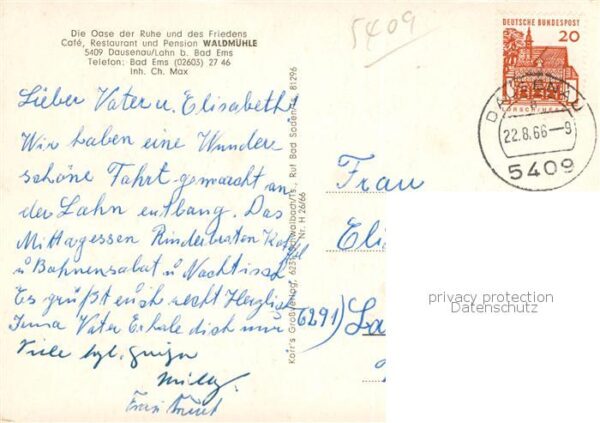 Die Oase der Ruhe und des Friedens
Café, Restaurant und Pension WALDMÜHLE
5409 Dausenau/Lahn b. Bad Ems
Telefon: Bad Ems (02603) 27 46
Inh. Ch. Max
5409
DEUTSCHE BUNDESPOST
20
LORSCH/HESSEN
DAUSENAU
22.8.66-9
5409
Lieber Vater u. Elisabeth!
Wir haben eine Wunder
schöne Fahrt gemacht an
der Lahn entlang. Das
Mittagessen Rinderbraten
u Bohnensalat u Nachtisch
Es grüßt euch recht Herzlich
Irma Vater Erhole dich
Viele
Willy
Karr's Großverlag, 6231 Schwalbach/Ts., Ruf Bad Soden 81296
Nr. H 26/66
Frau
Eli
6291) La
privacy protection
Datenschutz